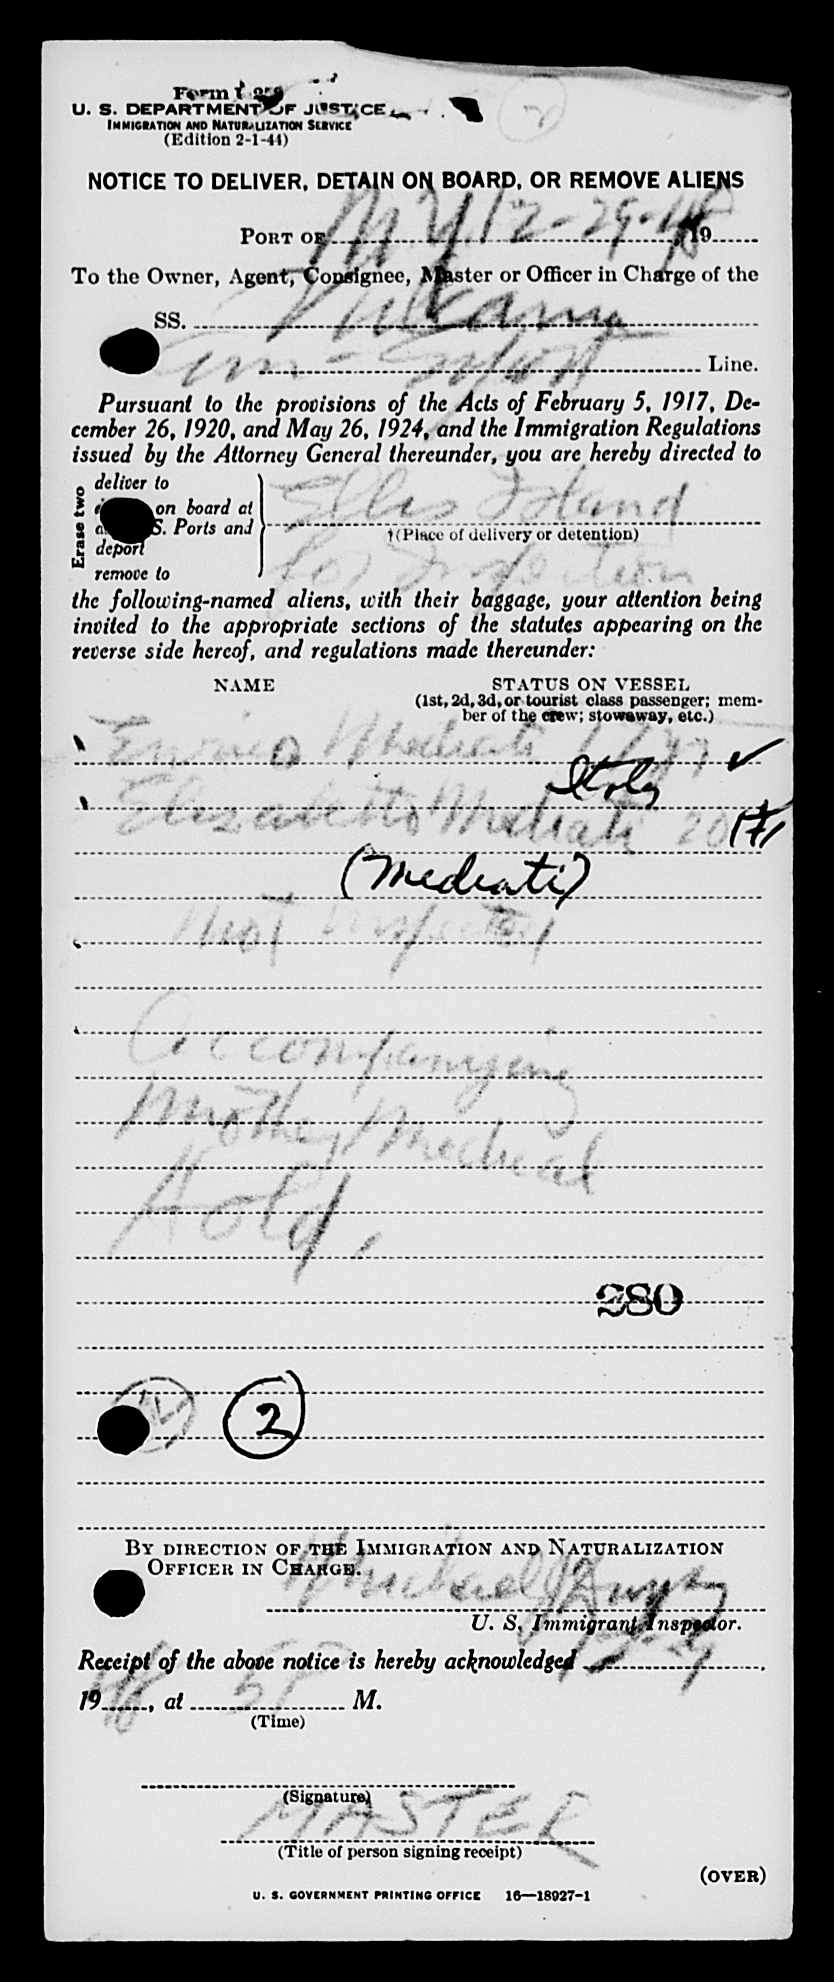 Form I-259
U. S. DEPARTMENT OF JUSTICE
IMMIGRATION AND NATURALIZATION SERVICE
(Edition 2-1-44)
2
NOTICE TO DELIVER, DETAIN ON BOARD, OR REMOVE ALIENS
PORT OF N Y 12-29-48, 19
To the Owner, Agent, Consignee, Master or Officer in Charge of the
SS. Vulcania
Am-Export Line.
Pursuant to the provisions of the Acts of February 5, 1917, De-
cember 26, 1920, and May 26, 1924, and the Immigration Regulations
issued by the Attorney General thereunder, you are hereby directed to
Erase two
deliver to
on board at
S. Ports and
deport
remove to
Ellis Island
†(Place of delivery or detention)
for Inspection
the following-named aliens, with their baggage, your attention being
invited to the appropriate sections of the statutes appearing on the
reverse side hereof, and regulations made thereunder:
NAME
STATUS ON VESSEL
(1st, 2d, 3d, or tourist class passenger; mem-
ber of the crew; stowaway, etc.)
Enrico Mediati 17 yrs ✓
Italy
Elisabetta Mediati 20
(Mediati)
Not inspected
Accompanying
Mother, Medical
Hold,
280
2
BY DIRECTION OF THE IMMIGRATION AND NATURALIZATION
OFFICER IN CHARGE.
Michael J
U. S. Immigrant Inspector.
Receipt of the above notice is hereby acknowledged
1948, at 5 P M.
(Time)
(Signature)
MASTER
(Title of person signing receipt)
(OVER)
U. S. GOVERNMENT PRINTING OFFICE 16—18927-1